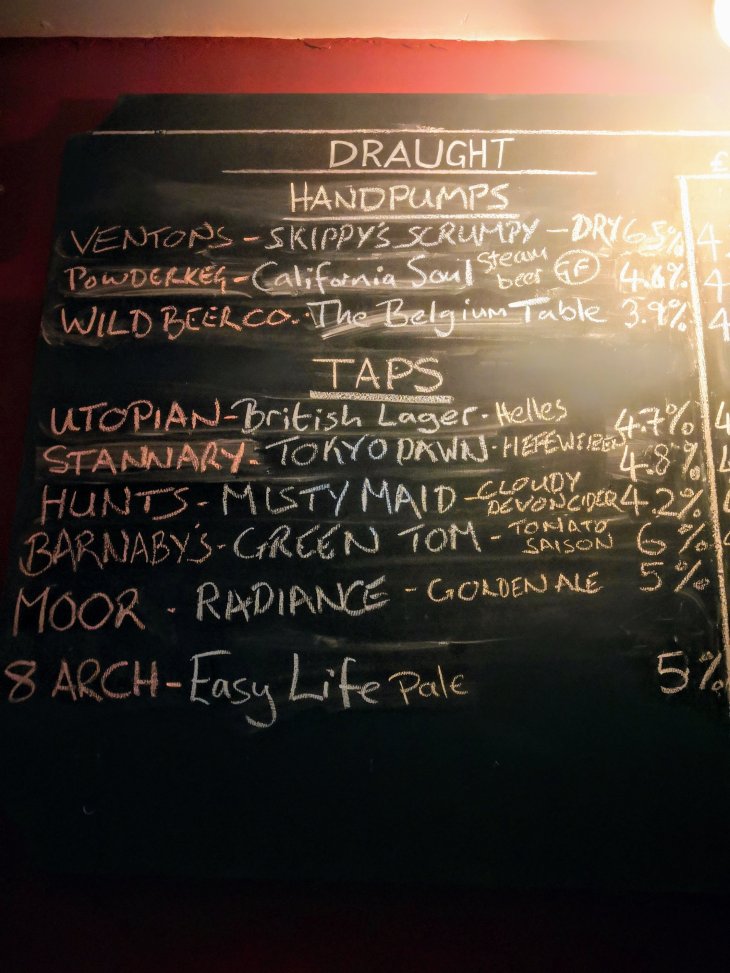 DRAUGHT
£
HANDPUMPS
VENTONS - SKIPPY'S SCRUMPY - DRY 6.5% 4.
POWDERKEG - California Soul steam beer GF 4.6% 4
WILD BEER CO. The Belgium Table 3.9% 4
TAPS
UTOPIAN - British Lager. Helles 4.7% 4
STANNARY - TOKYO DAWN - HEFEWEIZEN 4.8%
HUNTS - MISTY MAID - CLOUDY DEVON CIDER 4.2%
BARNABY'S - GREEN TOM - TOMATO SAISON 6%
MOOR - RADIANCE - GOLDEN ALE 5%
8 ARCH - Easy Life Pale 5%